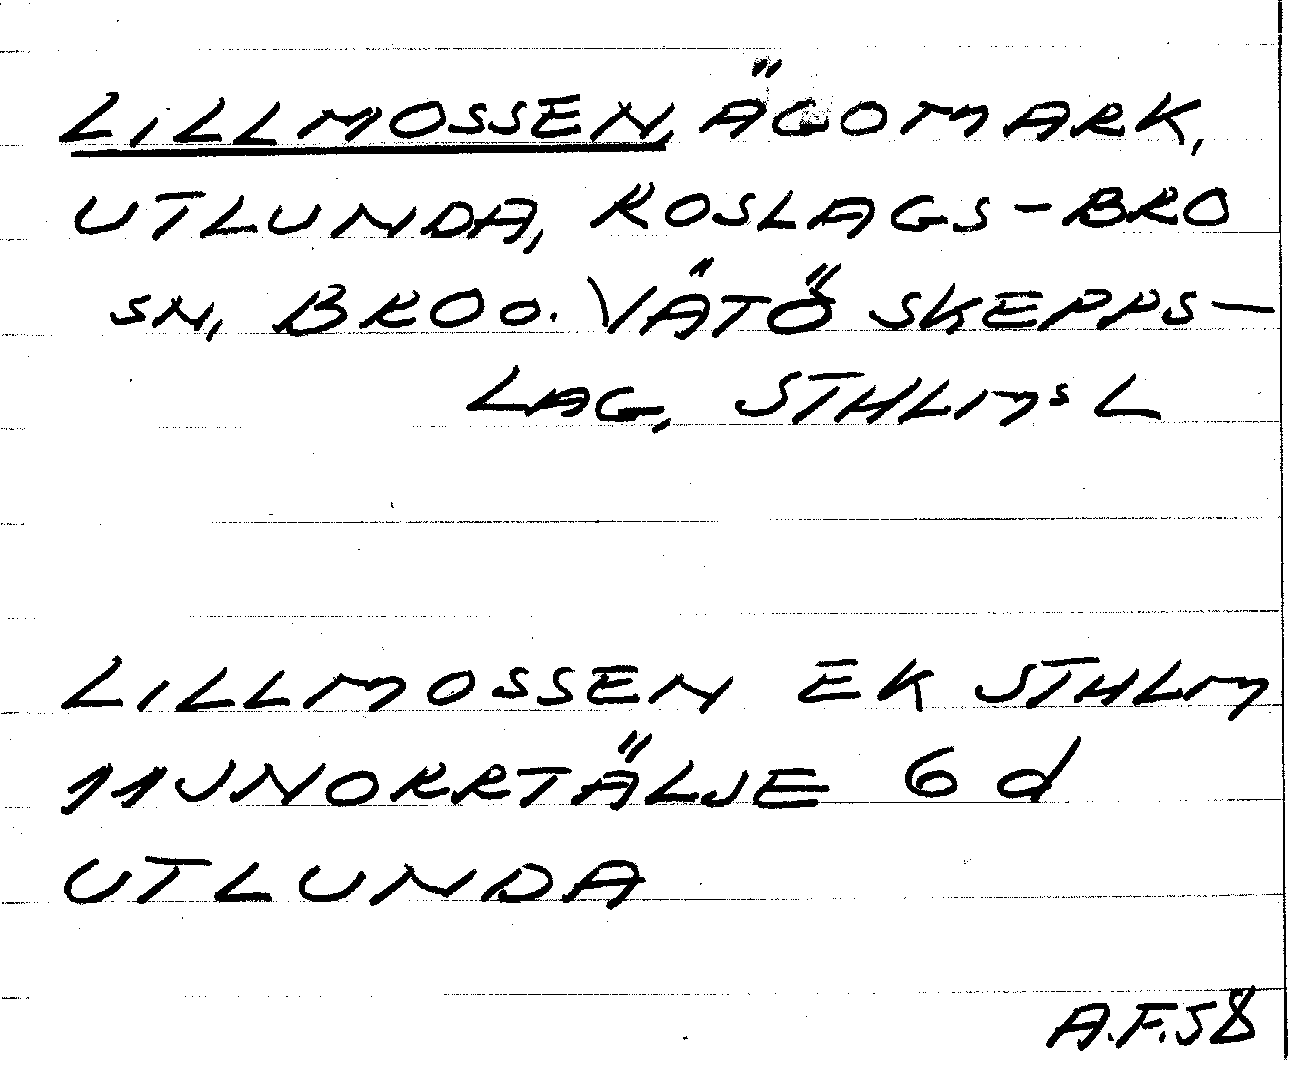 LILLMOSSEN, ÄGOMARK,
UTLUNDA, ROSLAGS-BRO
SN, BRO O. VÄTÖ SKEPPS-
LAG, STHLMS L
LILLMOSSEN EK STHLM
11J NORRTÄLJE 6 d
UTLUNDA
A.F.58